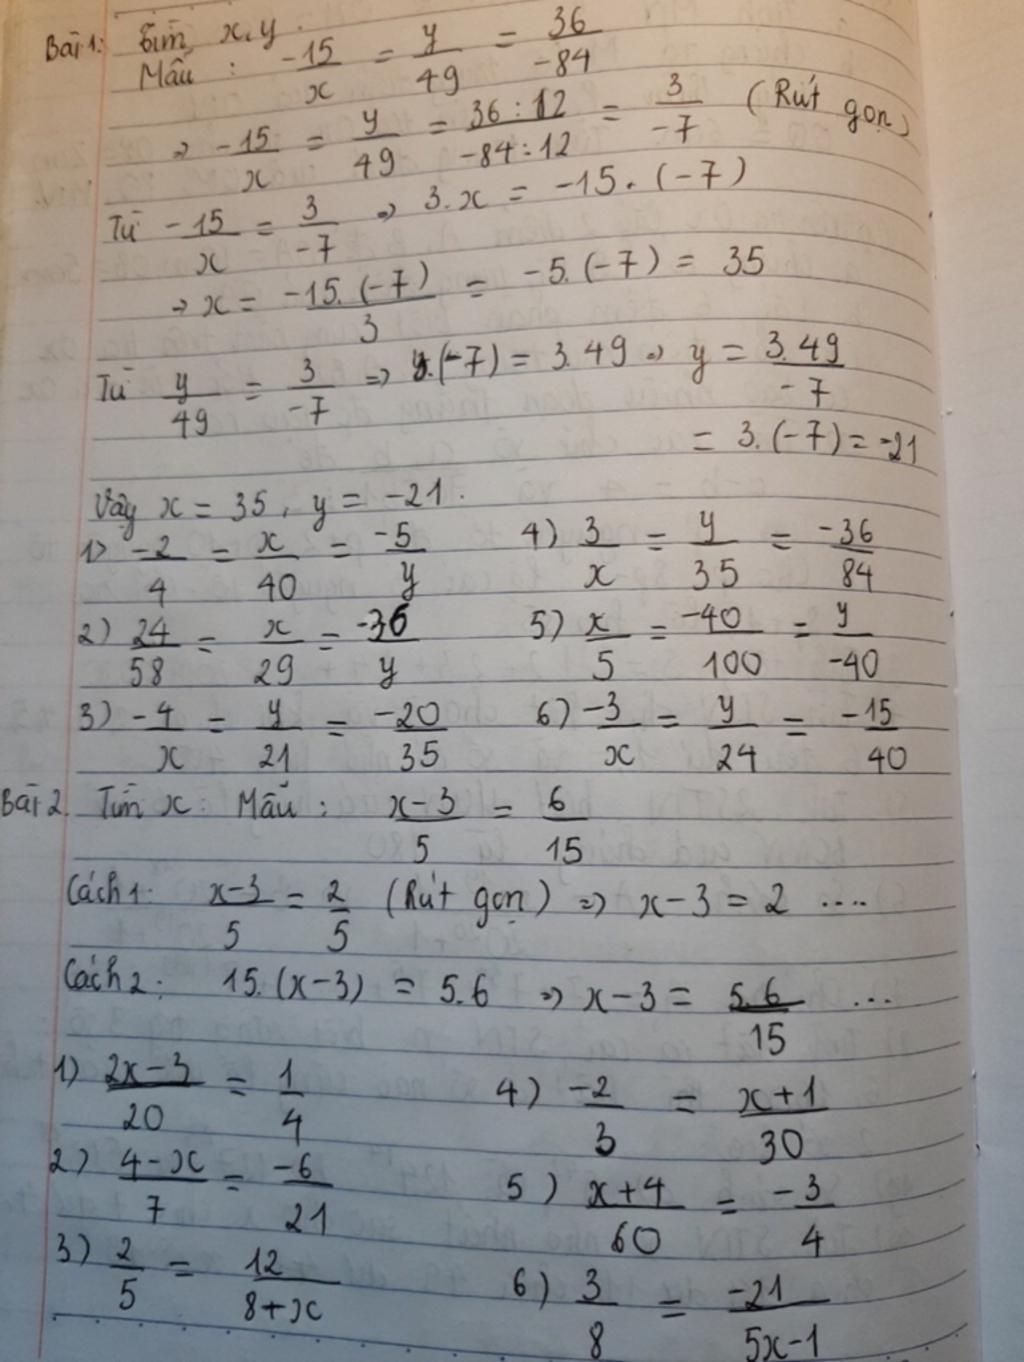 Bài 1: Tìm x, y.
Mẫu: -15/x = y/49 = 36/-84
=> -15/x = y/49 = 36:12/-84:12 = 3/-7 (Rút gọn)
Từ -15/x = 3/-7 => 3.x = -15.(-7)
=> x = -15.(-7)/3 = -5.(-7) = 35
Từ y/49 = 3/-7 => y.(-7) = 3.49 => y = 3.49/-7
= 3.(-7) = -21
Vậy x = 35, y = -21.
1) -2/4 = x/40 = -5/y 4) 3/x = y/35 = -36/84
2) 24/58 = x/29 = -36/y 5) x/5 = -40/100 = y/-40
3) -4/x = y/21 = -20/35 6) -3/x = y/24 = -15/40
Bài 2. Tìm x: Mẫu: x-3/5 = 6/15
Cách 1: x-3/5 = 2/5 (Rút gọn) => x-3 = 2 ....
Cách 2: 15.(x-3) = 5.6 => x-3 = 5.6/15 ...
1) 2x-3/20 = 1/4 4) -2/3 = x+1/30
2) 4-x/7 = -6/21 5) x+4/60 = -3/4
3) 2/5 = 12/8+x 6) 3/8 = -21/5x-1